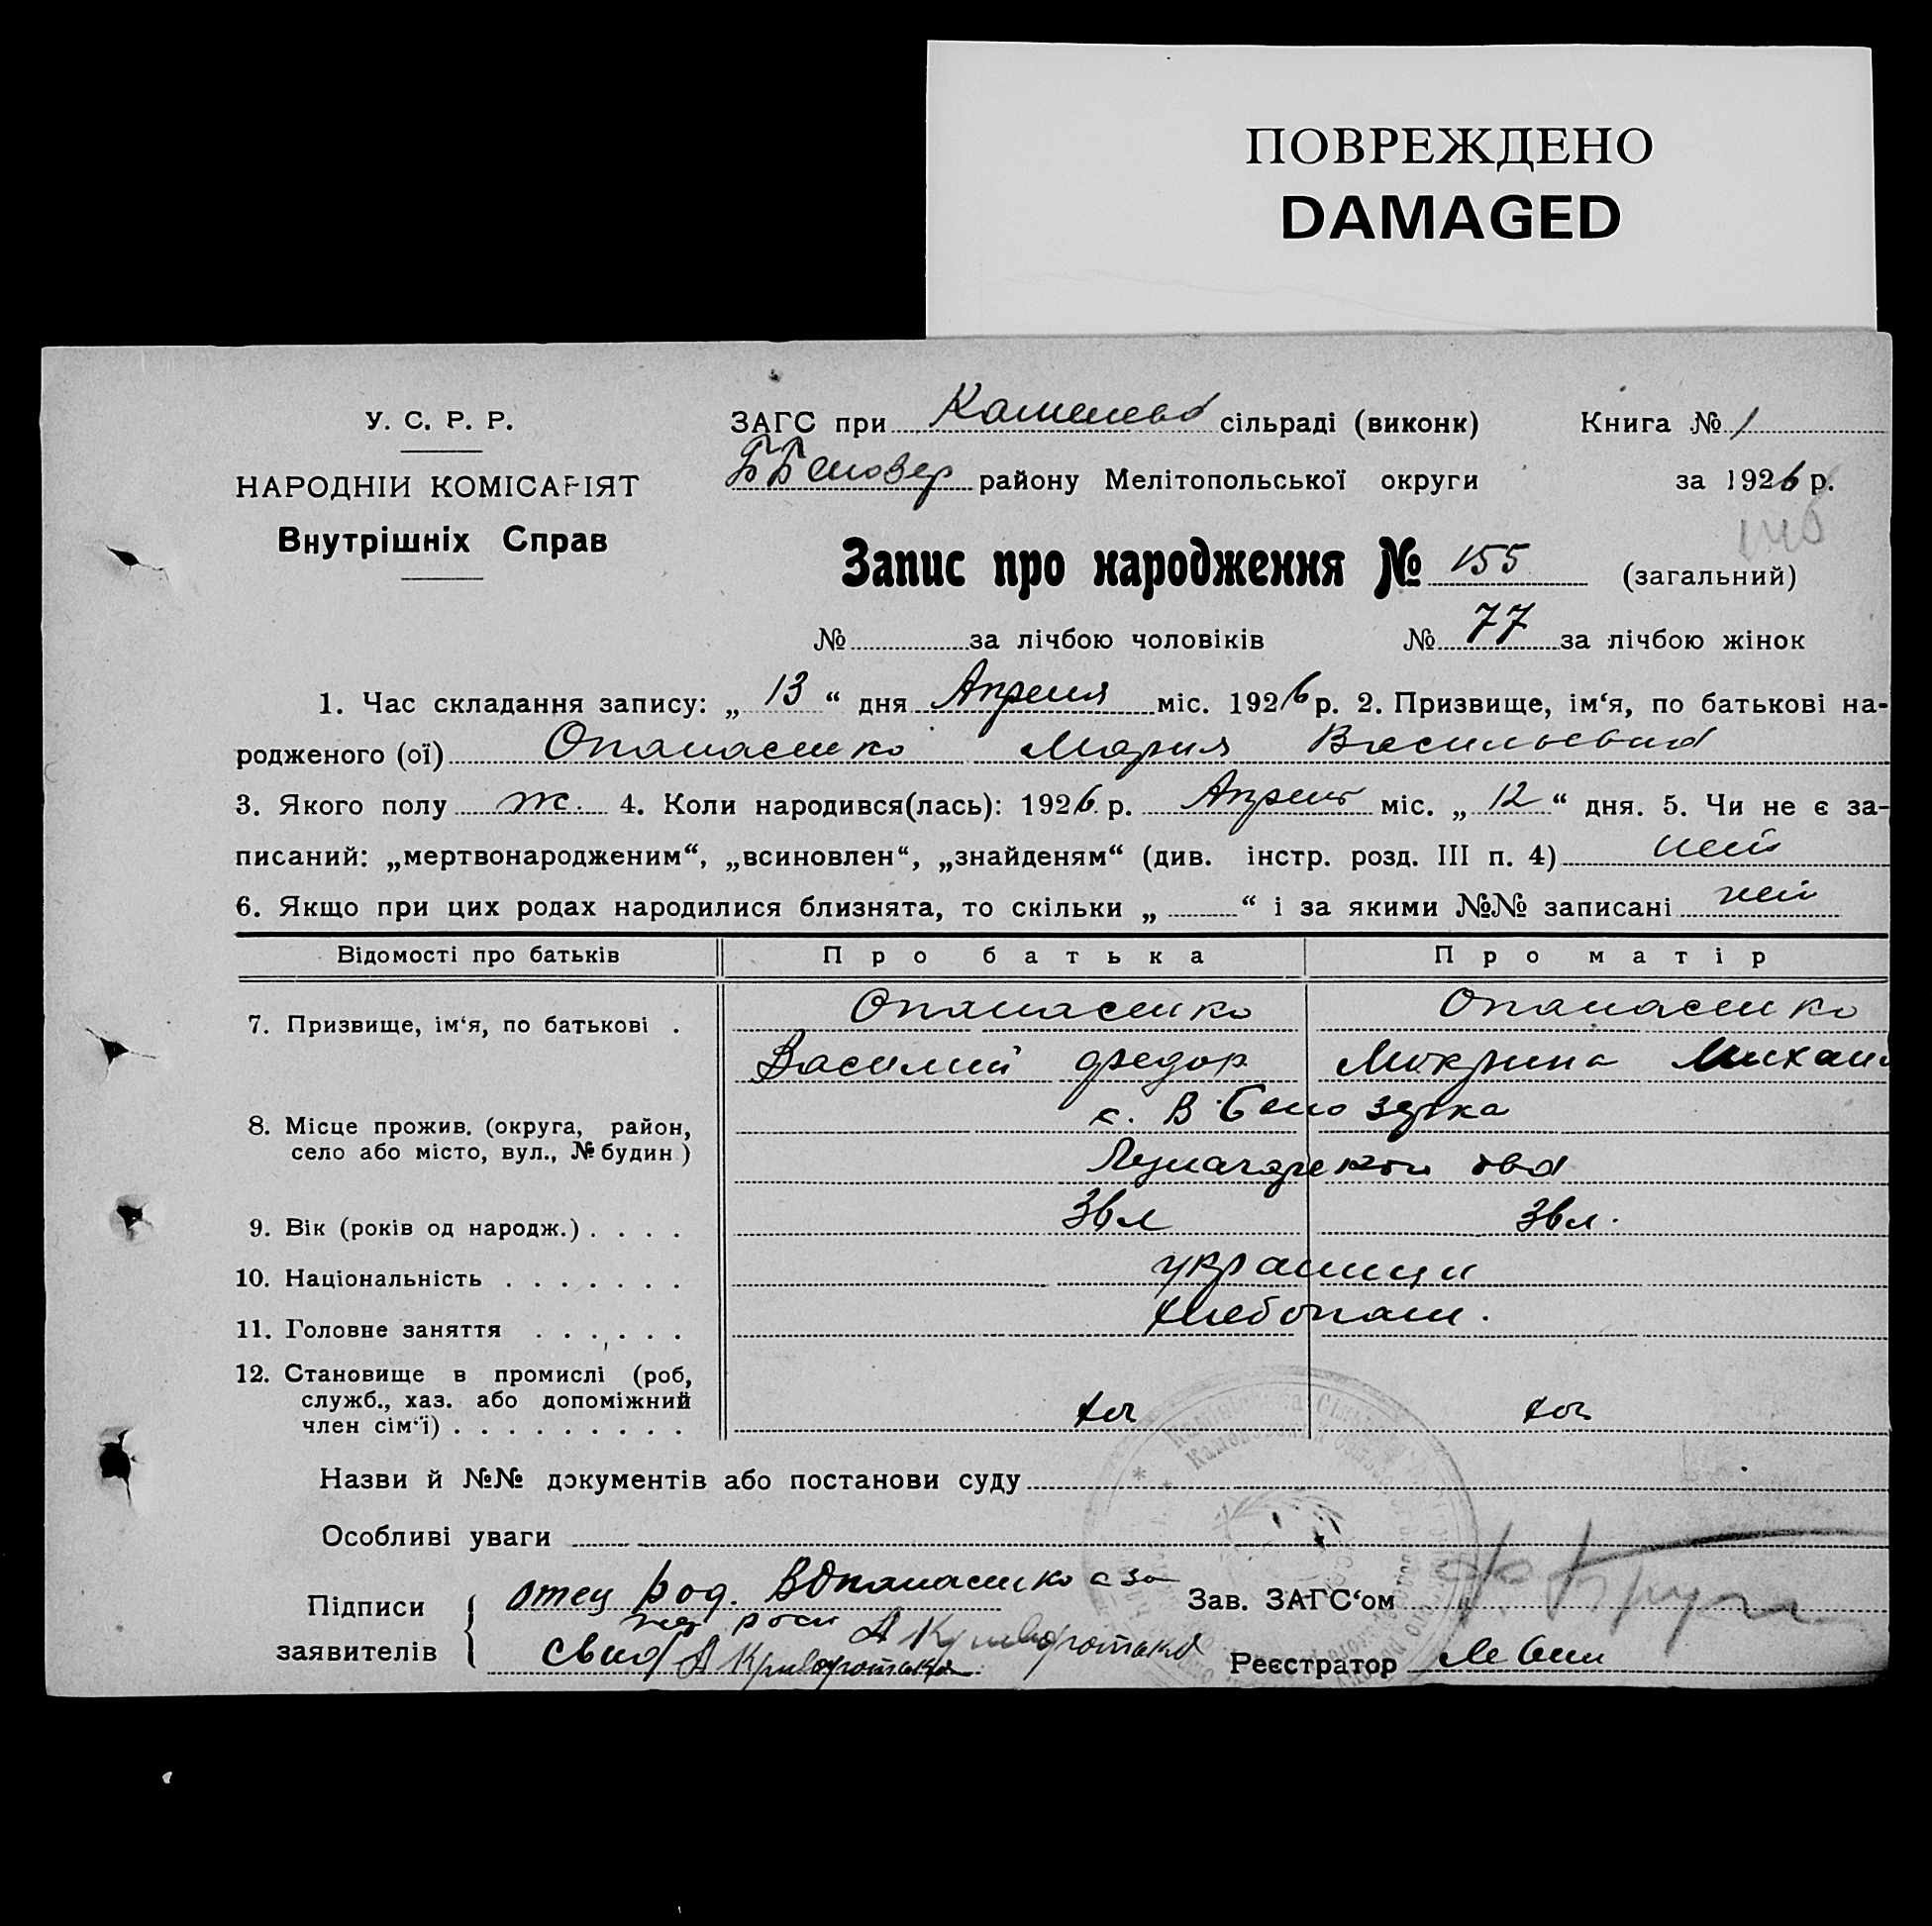 ПОВРЕЖДЕНО
DAMAGED
У. С. Р. Р.
НАРОДНІЙ КОМІСАРІЯТ
Внутрішніх Справ
ЗАГС при сільраді (виконк) Книга № 1
району Мелітопольської округи за 1926 р.
Запис про народження № 155 (загальний)
№ за лічбою чоловіків № 77 за лічбою жінок
1. Час складання запису: „ 13 “ дня Апреля міс. 1926 р. 2. Призвище, ім‘я, по батькові на-
родженого (ої) Опанасенко Мария Васильевна
3. Якого полу ж. 4. Коли народився(лась): 1926 р. Апреля міс. „ 12 “ дня. 5. Чи не є за-
писаний: „мертвонародженим“, „всиновлен“, „знайденям“ (див. інстр. розд. III п. 4) нет
6. Якщо при цих родах народилися близнята, то скільки „ “ і за якими №№ записані нет
Відомості про батьків Про батька Про матір
7. Призвище, ім‘я, по батькові . Опанасенко Опанасенко
Василий Федор Макрина Михаил
8. Місце прожив. (округа, район,
село або місто, вул., № будин)
с. В Белозерка
9. Вік (років од народж.) . . . . 36 л 36 л.
10. Національність . . . . . . . украинци
11. Головне заняття . . . . . . хлебопаш.
12. Становище в промислі (роб,
служб., хаз. або допоміжний
член сім‘ї) . . . . . . . . . хоз хоз
Назви й №№ документів або постанови суду
Особливі уваги
Підписи
заявителів
отец род. В Опанасенко а за
Зав. ЗАГС‘ом
свид А Криворотько
Реєстратор